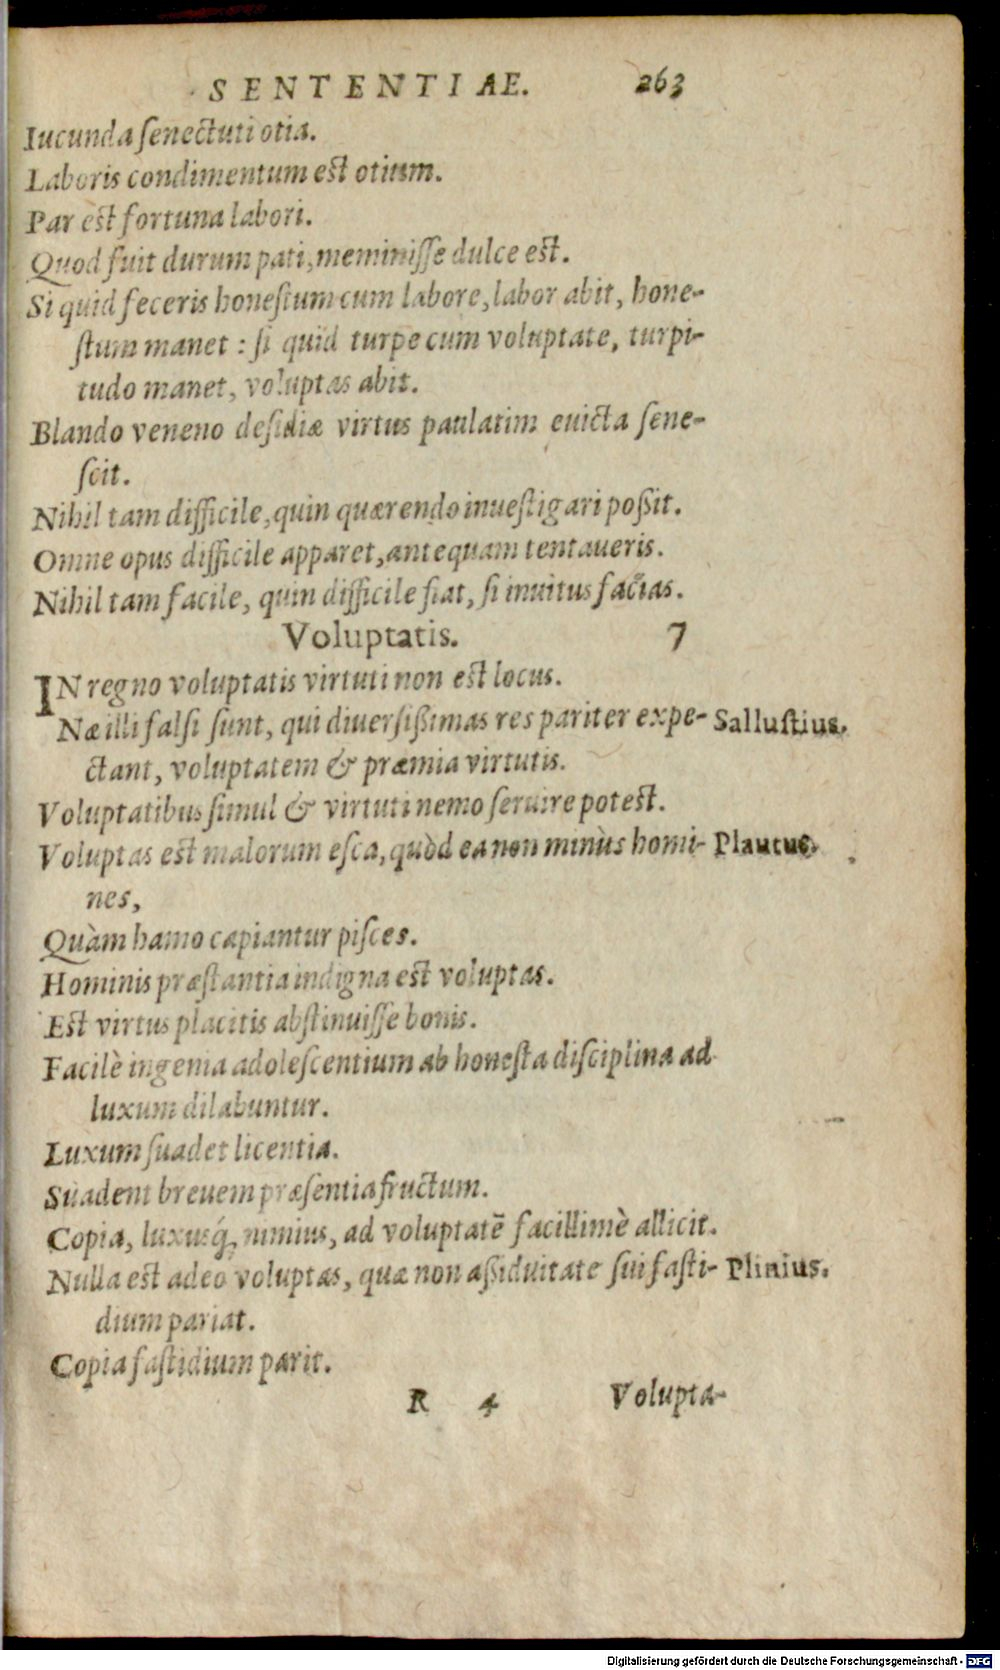 SENTENTIAE. 263
Iucunda ſenectuti otia.
Laboris condimentum est otium.
Par est fortuna labori.
Quod fuit durum pati, meminiſſe dulce est.
Si quid feceris honeſtum cum labore, labor abit, hone-
ſtum manet : ſi quid turpe cum voluptate, turpi-
tudo manet, voluptas abit.
Blando veneno deſidiæ virtus paulatim euicta ſene-
ſcit.
Nihil tam difficile, quin quærendo inueſtigari poßit.
Omne opus difficile apparet, antequam tentaueris.
Nihil tam facile, quin difficile fiat, ſi inuitus facias.
Voluptatis. 7
IN regno voluptatis virtuti non est locus.
Næ illi falſi ſunt, qui diuerſißimas res pariter expe- Salluſtius.
ctant, voluptatem & præmia virtutis.
Voluptatibus ſimul & virtuti nemo ſeruire potest.
Voluptas est malorum eſca, quòd ea non minùs homi- Plautus.
nes,
Quàm hamo capiantur piſces.
Hominis præſtantia indigna est voluptas.
Est virtus placitis abſtinuiſſe bonis.
Facilè ingenia adoleſcentium ab honeſta diſciplina ad
luxum dilabuntur.
Luxum ſuadet licentia.
Suadent breuem præſentia fructum.
Copia, luxusq́, nimius, ad voluptatē facillimè allicit.
Nulla est adeo voluptas, quæ non aßiduitate ſui faſti- Plinius.
dium pariat.
Copia faſtidium parit.
R 4 Volupta-
Digitalisierung gefördert durch die Deutsche Forschungsgemeinschaft - DFG